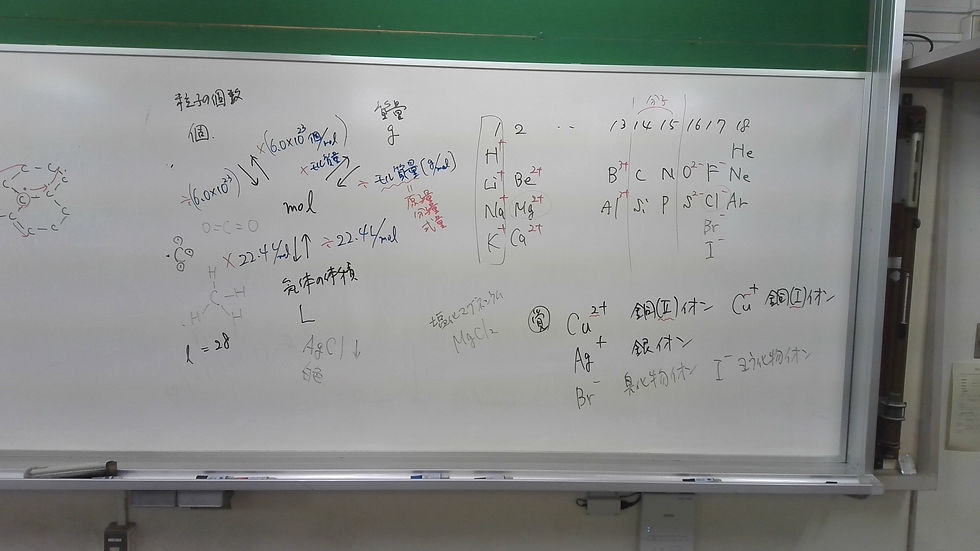 粒子の個数
個
×(6.0×10²³個/mol)
÷(6.0×10²³)
質量
g
×モル質量
÷モル質量[g/mol]
=
原子量
分子量
式量
mol
O=C=O
×22.4L/mol
÷22.4L/mol
気体の体積
L
H
C
H
H
H
l=28
AgCl↓
白色
塩化マグネシウム
MgCl₂
分子
1 2 ‥ 13 14 15 16 17 18
H⁺ He
Li⁺ Be²⁺ B³⁺ C N O²⁻ F⁻ Ne
Na⁺ Mg²⁺ Al³⁺ Si P S²⁻ Cl⁻ Ar
K⁺ Ca²⁺ Br⁻
I⁻
覚 Cu²⁺ 銅(II)イオン Cu⁺ 銅(I)イオン
Ag⁺ 銀イオン
Br⁻ 臭化物イオン I⁻ ヨウ化物イオン